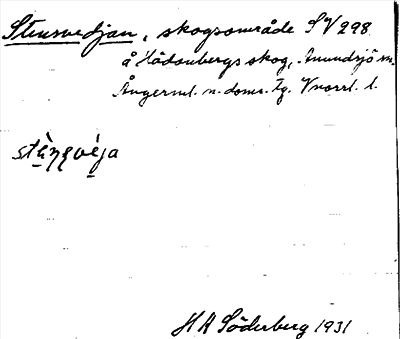 Stensvedjan, skogsområde SV 298
å Hädanbergs skog, Anundsjö sn.
Ångerml. n. doms. Tg. Vnorrl. l.
stè̱ŋsvé̱ja
H A Söderberg 1931